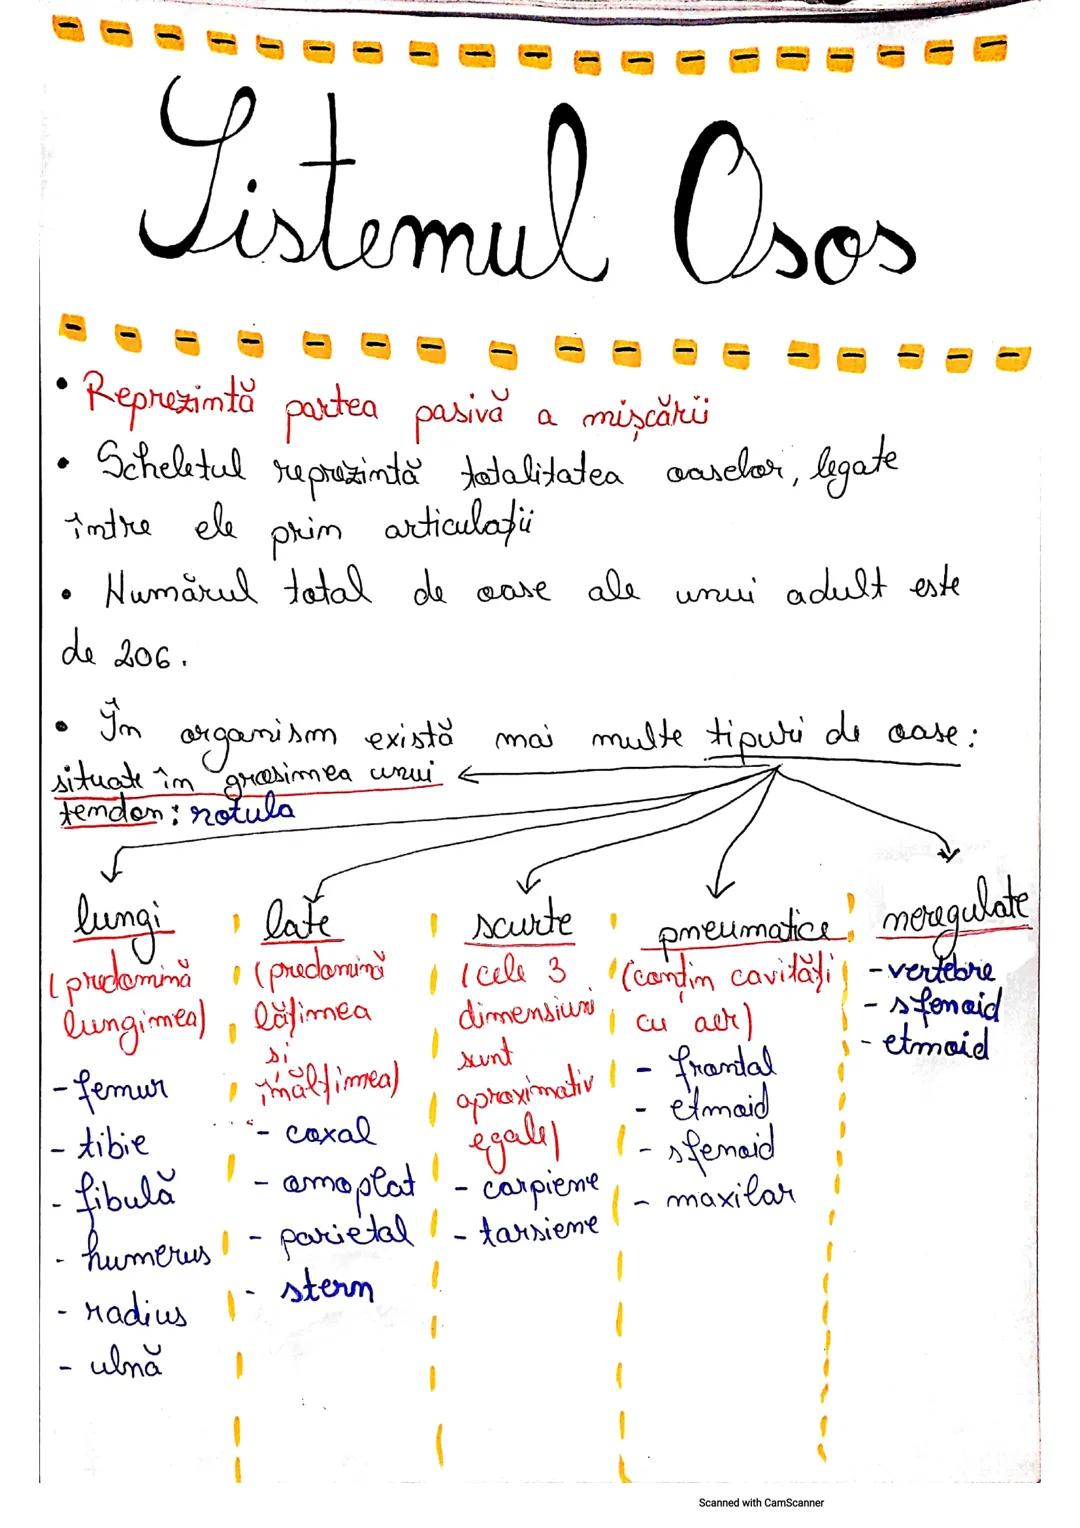 Sistemul Osos
• Reprezintă partea pasivă a mișcării
• Scheletul reprezintă totalitatea oaselor, legate
între ele prin articulații
• Numărul total de oase ale unui adult este
de 206.
• În organism există mai multe tipuri de oase:
situate în grosimea unui
tendon: rotula
lungi
(predomină
lungimea)
- femur
- tibie
- fibulă
- humerus
- radius
- ulnă
late
(predomină
lățimea
și
înălțimea)
- coxal
- omoplat
- parietal
- stern
scurte
(cele 3
dimensiuni
sunt
aproximativ
egale)
- carpiene
- tarsiene
pneumatice
(conțin cavități
cu aer)
- frontal
- etmoid
- sfenoid
- maxilar
neregulate
- vertebre
- sfenoid
- etmoid
Scanned with CamScanner